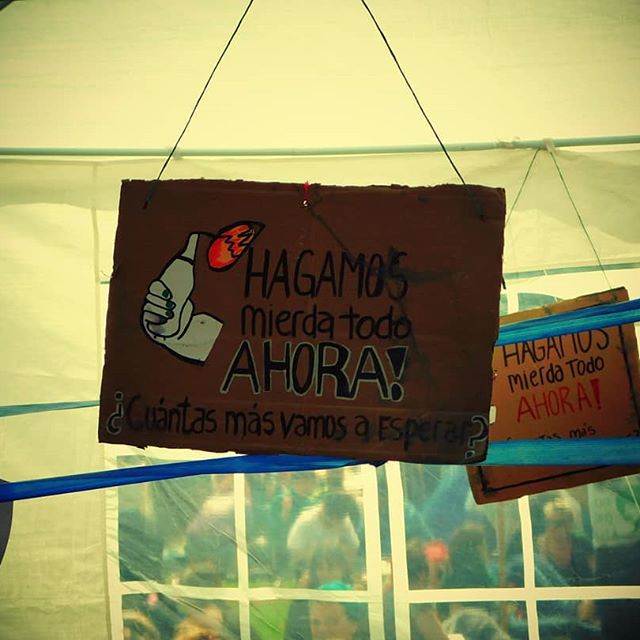 HAGAMOS
mierda todo
AHORA!
¿Cuántas más vamos a Esperar?
HAGAMOS
mierda Todo
AHORA!